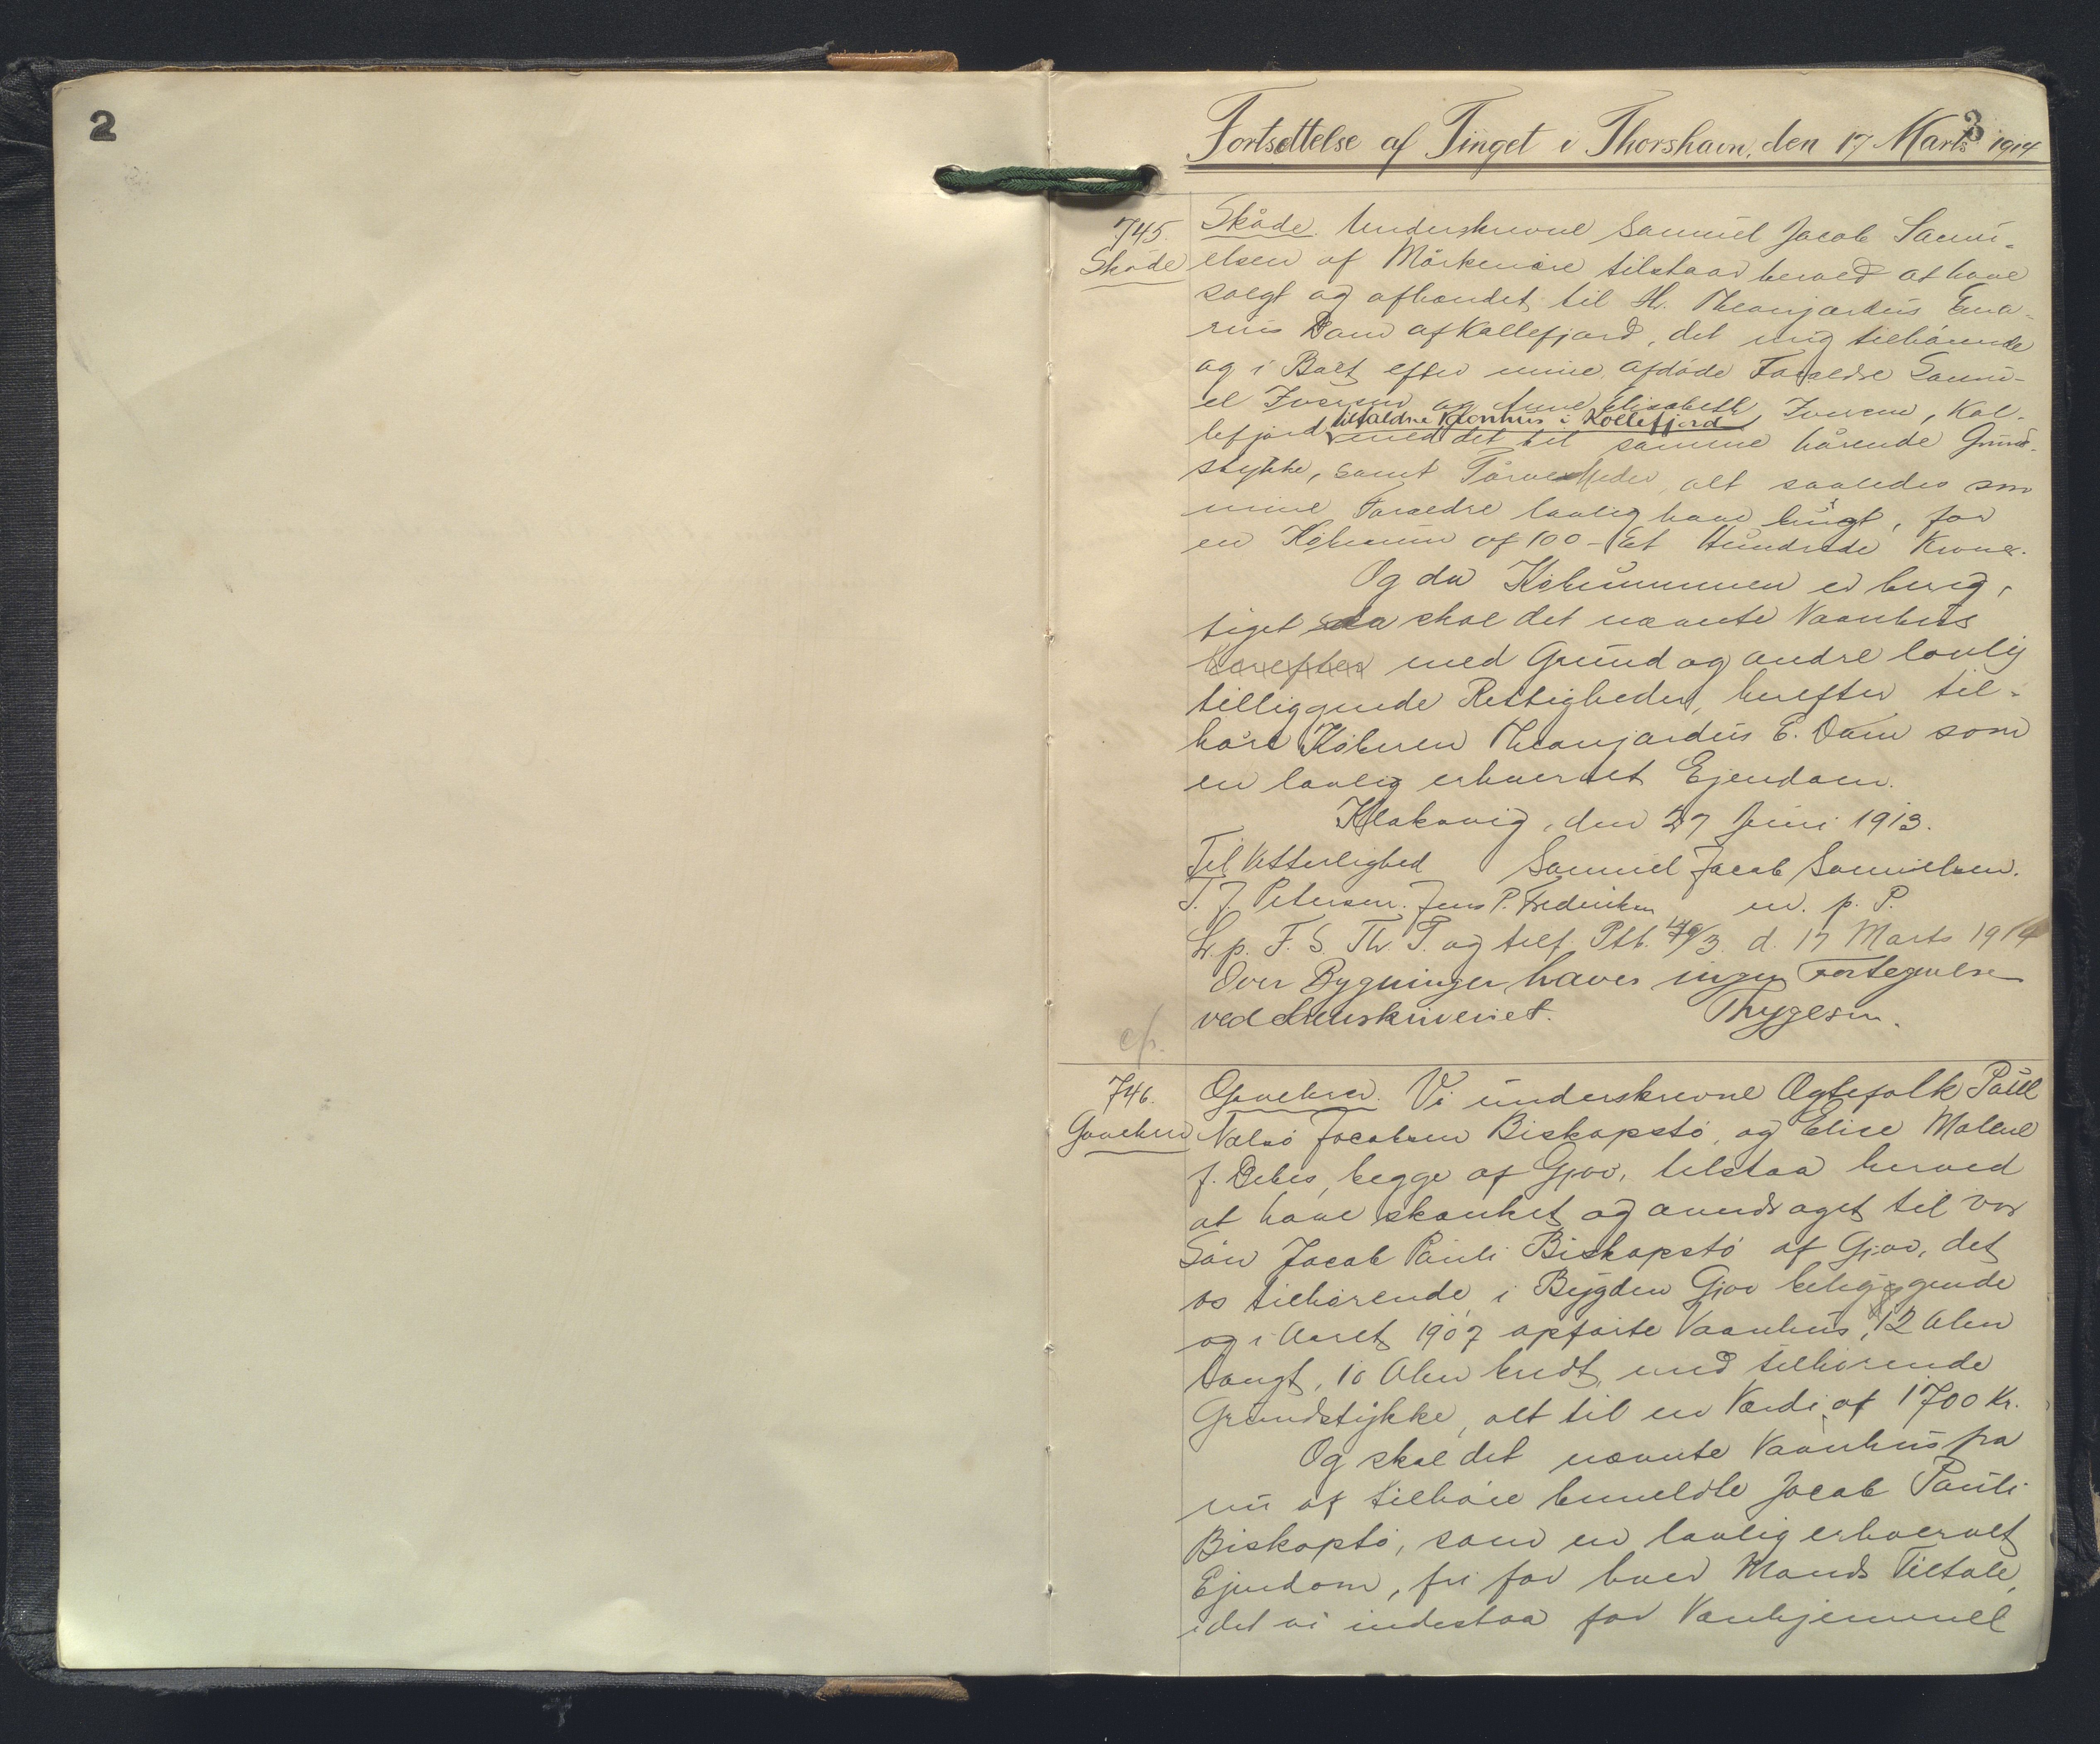 2
3
Fortsettelse af Tinget i Thorshavn, den 17 Marts 1914
745.
Skøde
Skåde. Underskrevne Samuel Jacob Samu-
elsen af Mårkenåre tilstaar herved at have
solgt og afhændet til H. Meanjardus Ema-
nus Dam af Kollefjord, det mig tilhörende
og i Boet efter mine afdøde Foraeldre Samu-
el Joensen og Anne Elisabeth Joensen, Kol-
lefjord, tilfaldne Vaanhus i Kollefjord
med det til samme hårende Grund-
stykke, samt Tørvesteder, alt saaledes som
mine Foraeldre lovlig have brugt, for
en Købesum af 100 - Et Hundrede Kroner.
Og da Købesummen er berig-
tiget saa skal det nævnte Vaanhus
herefter med Grund og andre lovlig
tilliggende Rettigheder, herefter til-
håre Køberen Meanjardus E. Dam som
en lovlig erhvervet Ejendom.
Klaksvig, den 27 Juni 1913.
Til Vitterlighed Samuel Jacob Samuelsen.
T. J. Petersen. Jens P. Frederiksen m. p. P.
L. p. F. S. Th. T. og tilf. Ptb. d. 17 Marts 1914
Over Bygninger haves ingen Fortegnelse
ved Sorenskriveriet. Thygesen.
cfr.
746.
Gavebrev
Gavebrev. Vi underskrevne Ægtefolk Paul
Nolsö Jocobsen Biskopstö, og Elise Malene
f. Debes, begge af Gjov, tilstaa herved
at have skænket og overdraget til vor
Sön Jacob Pauli Biskopstö af Gjov, det
os tilhörende i Bygden Gjov beliggende
og i Aaret 1907 opförte Vaanhus, 12 Alen
langt, 10 Alen bredt, med tilhörende
Grundstykke, alt til en Værdi af 1700 Kr.
Og skal det nævnte Vaanhus fra
nu af tilhöre bemeldte Jacob Pauli
Biskopstö, som en lovlig erhvervet
Ejendom, fri for hver Mands Tiltale,
idet vi indestaa for Vanhjemmel